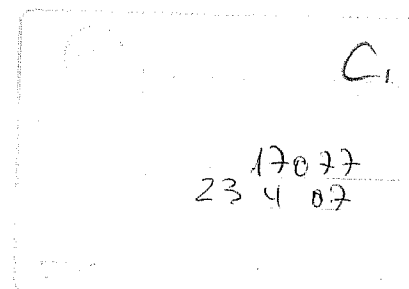 C1
17077
23 4 07